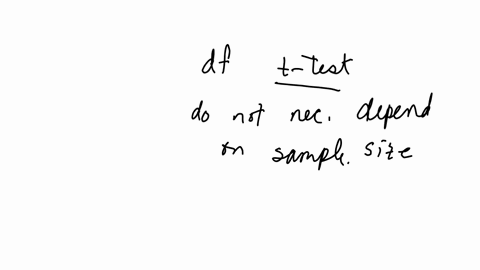 df t-test
do not nec. depend
on sample. size